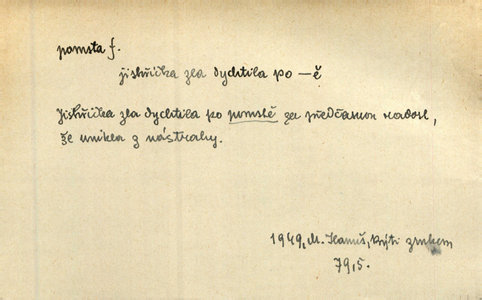 pomsta f.
jiskřička zla dychtila po —ě
Jiskřička zla dychtila po pomstě za předčasnou radost,
že unikla z nástrahy.
1949, M. Hanuš,
79,5.